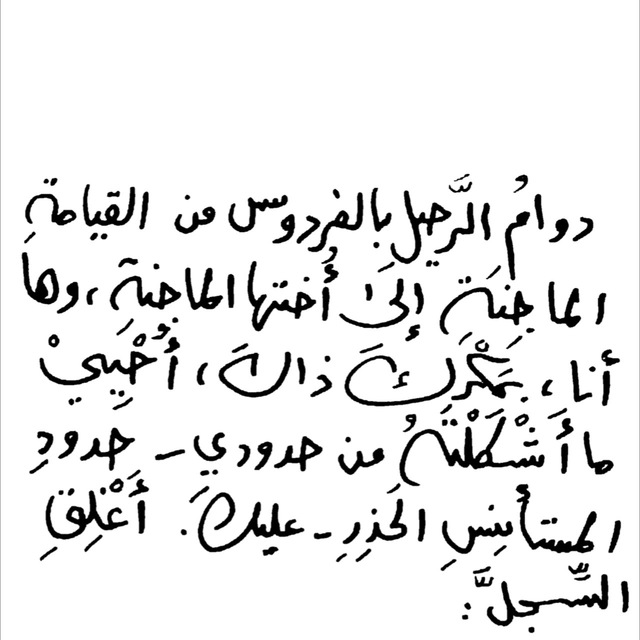 دوامُ الرَّحيل بالفردوس من القيامةِ
الماجِنَةِ إلَى أُختها الماجِنةِ، وها
أنا، بِمَكْرِكَ ذاكَ، أُحْيِيْ
ما أَشْكَلْتَهُ من حدودي - حَدودِ
المستأنِسِ الحَذِرِ - عليكَ. أَغْلِقِ
السِّجلَّ: